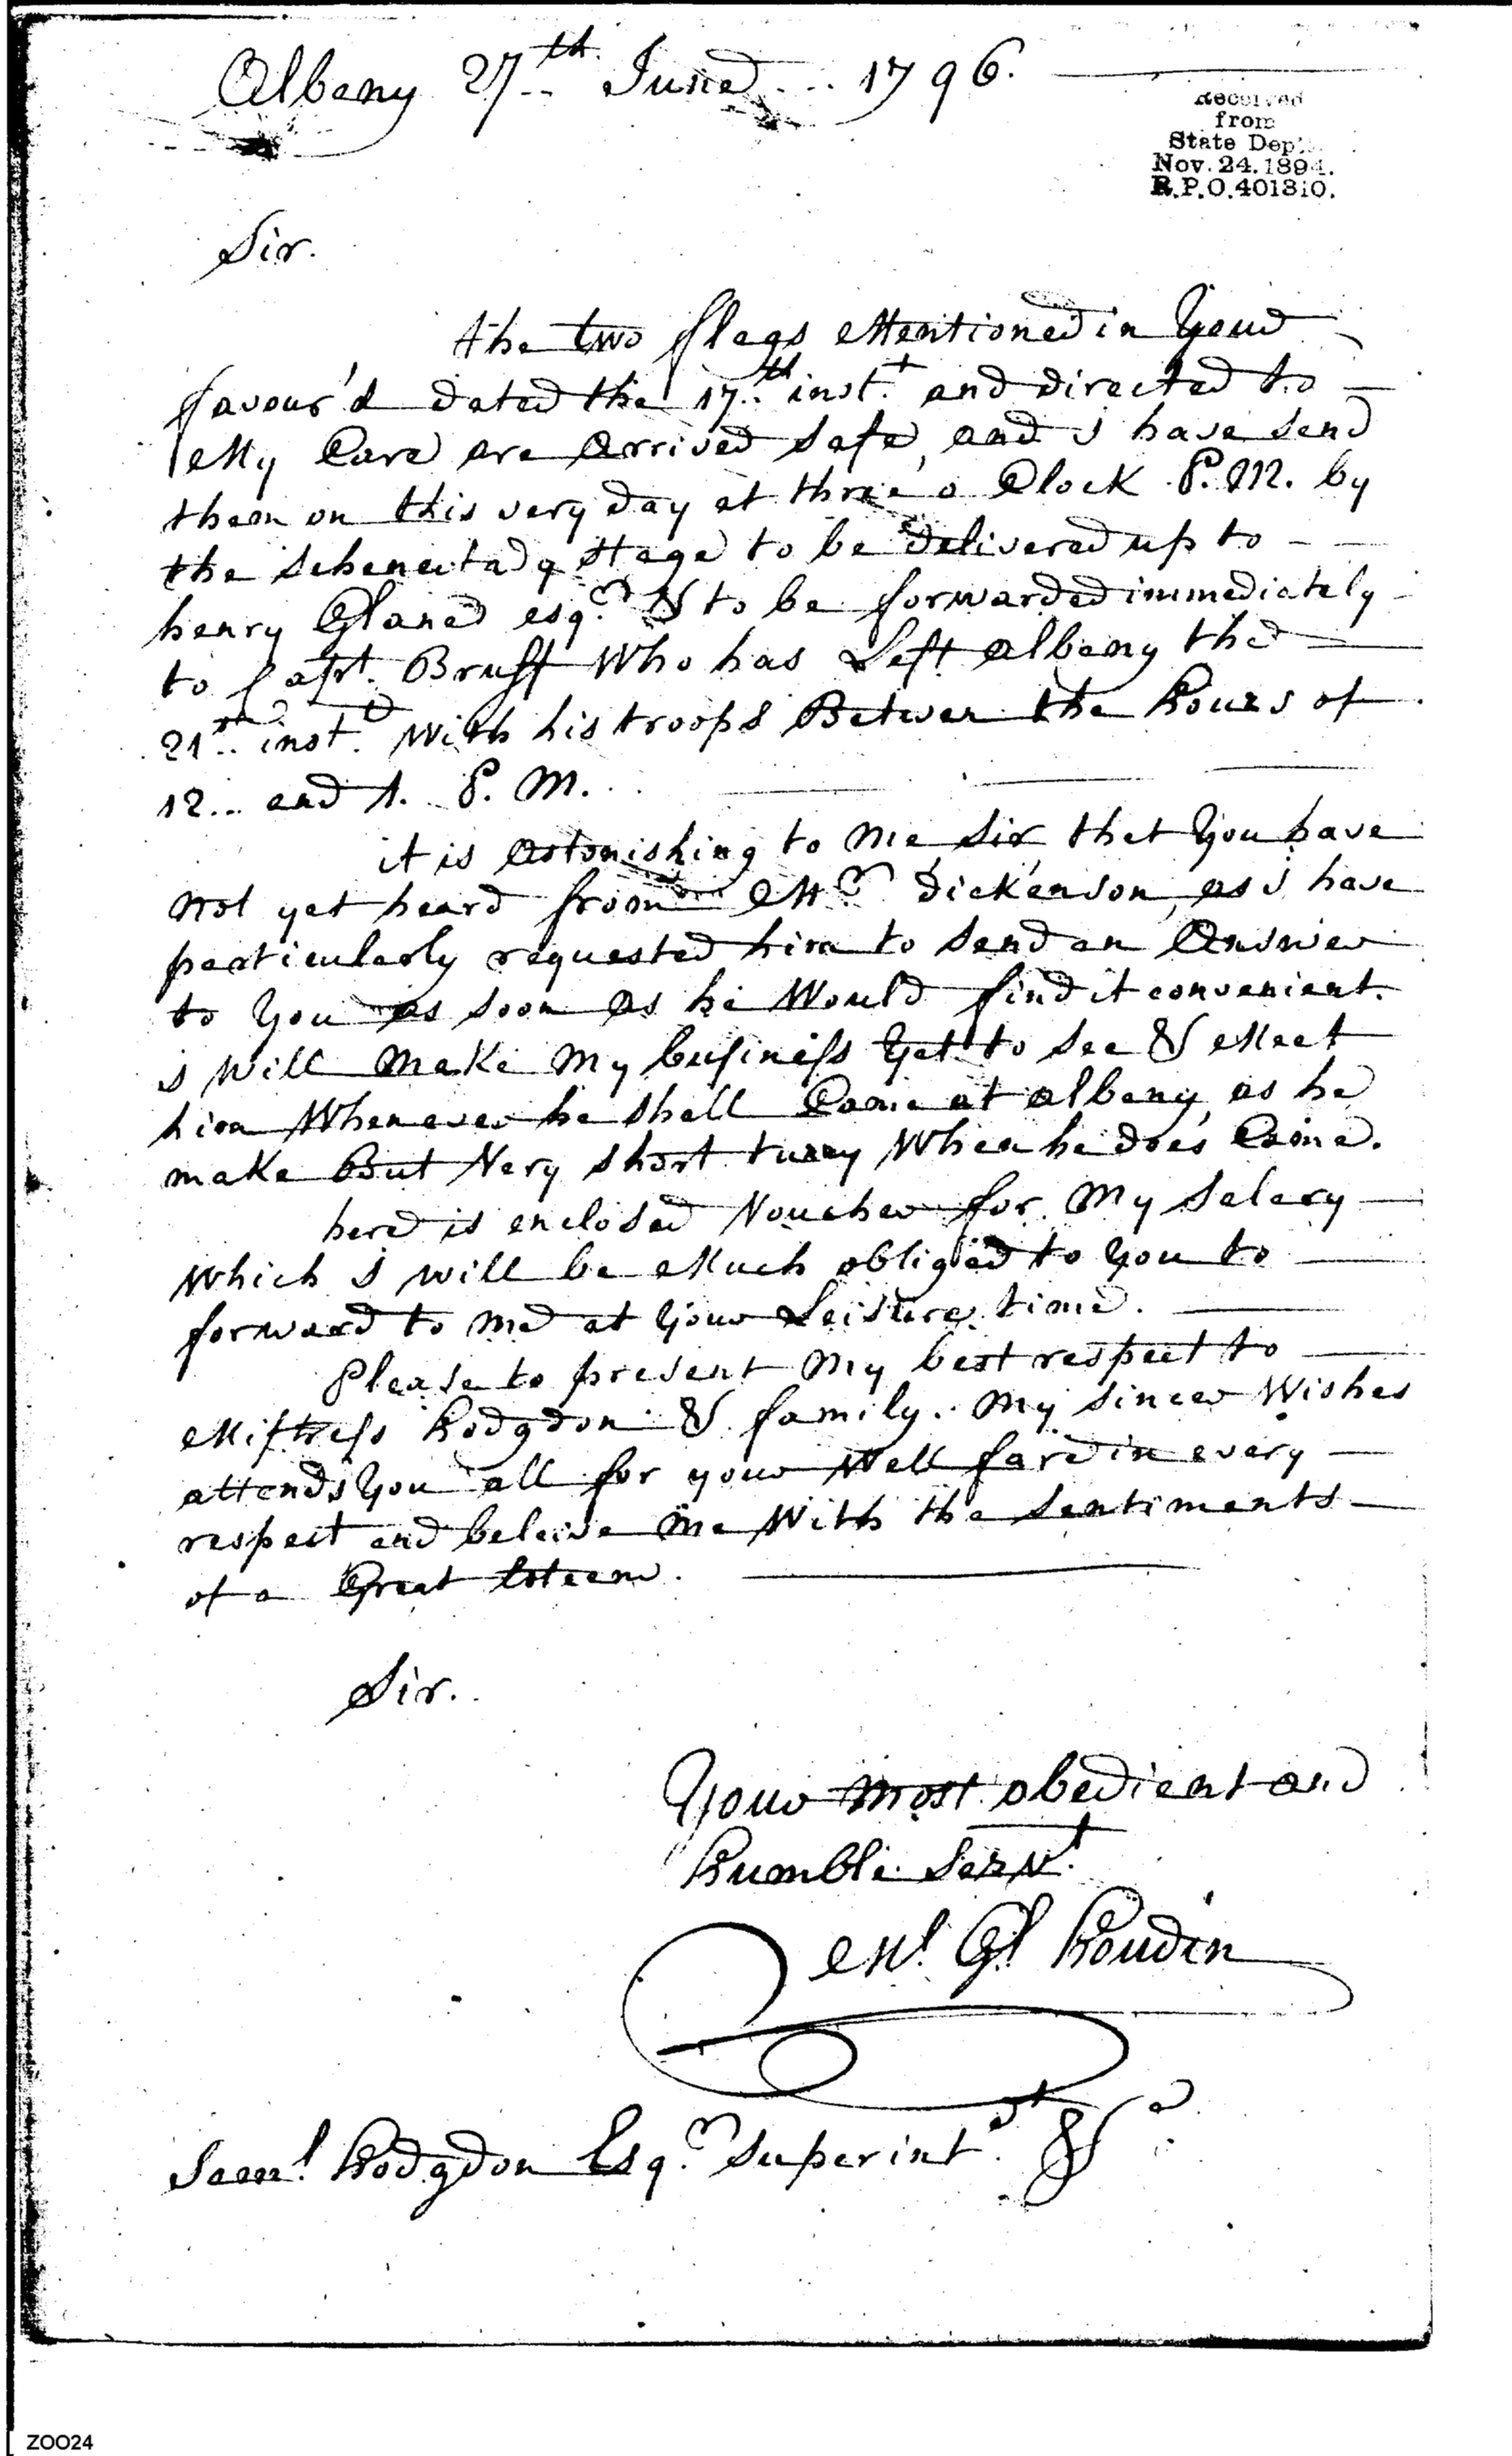 Albany 27th June 1796.
Received
from
State Dept.
Nov. 24. 1894.
R.P.O. 401310.
Sir.
the two flags Mentioned in Your
favour'd dated the 17th inst. and directed to
My Care are Arrived Safe, and i have Send
them on this very day at three o Clock P.M. by
the Schenectady Stage to be delivered up to
henry Glane esqr. & to be forwarded immediately
to Capt. Bruff Who has Left Albany the
21st inst. With his troops Betwen the hours of
12 and 1. P.M.
it is Astonishing to Me Sir that You have
Not yet heard from Mr. Dickenson, as i have
particularly requested him to Send an Answer
to You as Soon as he Would find it convenient.
i Will Make My business Yet to See & Meet
him Whenever he Shall Come at Albany, as he
make But Very Short tarry When he does Come.
here is enclosed Voucher for My Salary
Which i Will be Much obliged to You to
forward to Me at Your Leisure time.
Please to present My best respect to
Mistress hodgdon & family. My Sincer Wishes
attends You all for your Well fare in every
respect and beleive Me With the Sentiments
of a Great Esteem.
Sir.
Your Most obedient and
humble Servt.
Ml. Gl. houdin
Saml. hodgdon Esqr. Superintd. &c
ZOO24